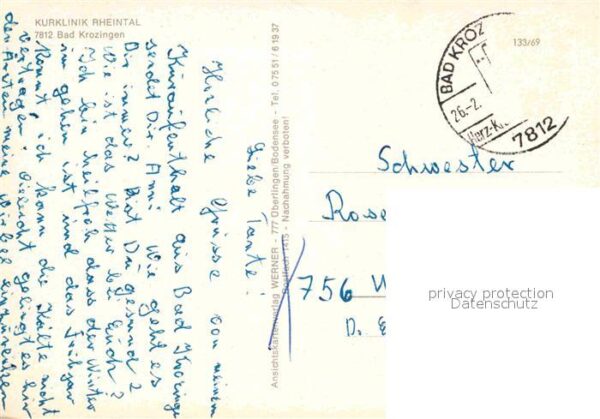 KURKLINIK RHEINTAL
7812 Bad Krozingen
Liebe Tante!
Herzliche Grüsse von meinem
Kuraufenthalt aus Bad Krozingen
sendet Dir Anni. Wie geht es
Dir immer? Bist Du gesund?
Wie ist das Wetter bei Euch?
Ich bin heilfroh dass der Winter
im gehen ist und das Frühjar
kommt, ich kann die Kälte nicht
vertragen. Vieleicht gelingt es hir
den meine Wirbel einzurenken
Ansichtskartenverlag WERNER - 777 Überlingen Bodensee - Tel. 07551/61937
Postfach 1415 - Nachahmung verboten!
133/69
BAD KROZ
26.-2.
Herz-K
7812
Schwester
Rose
756 W
D. E
privacy protection
Datenschutz